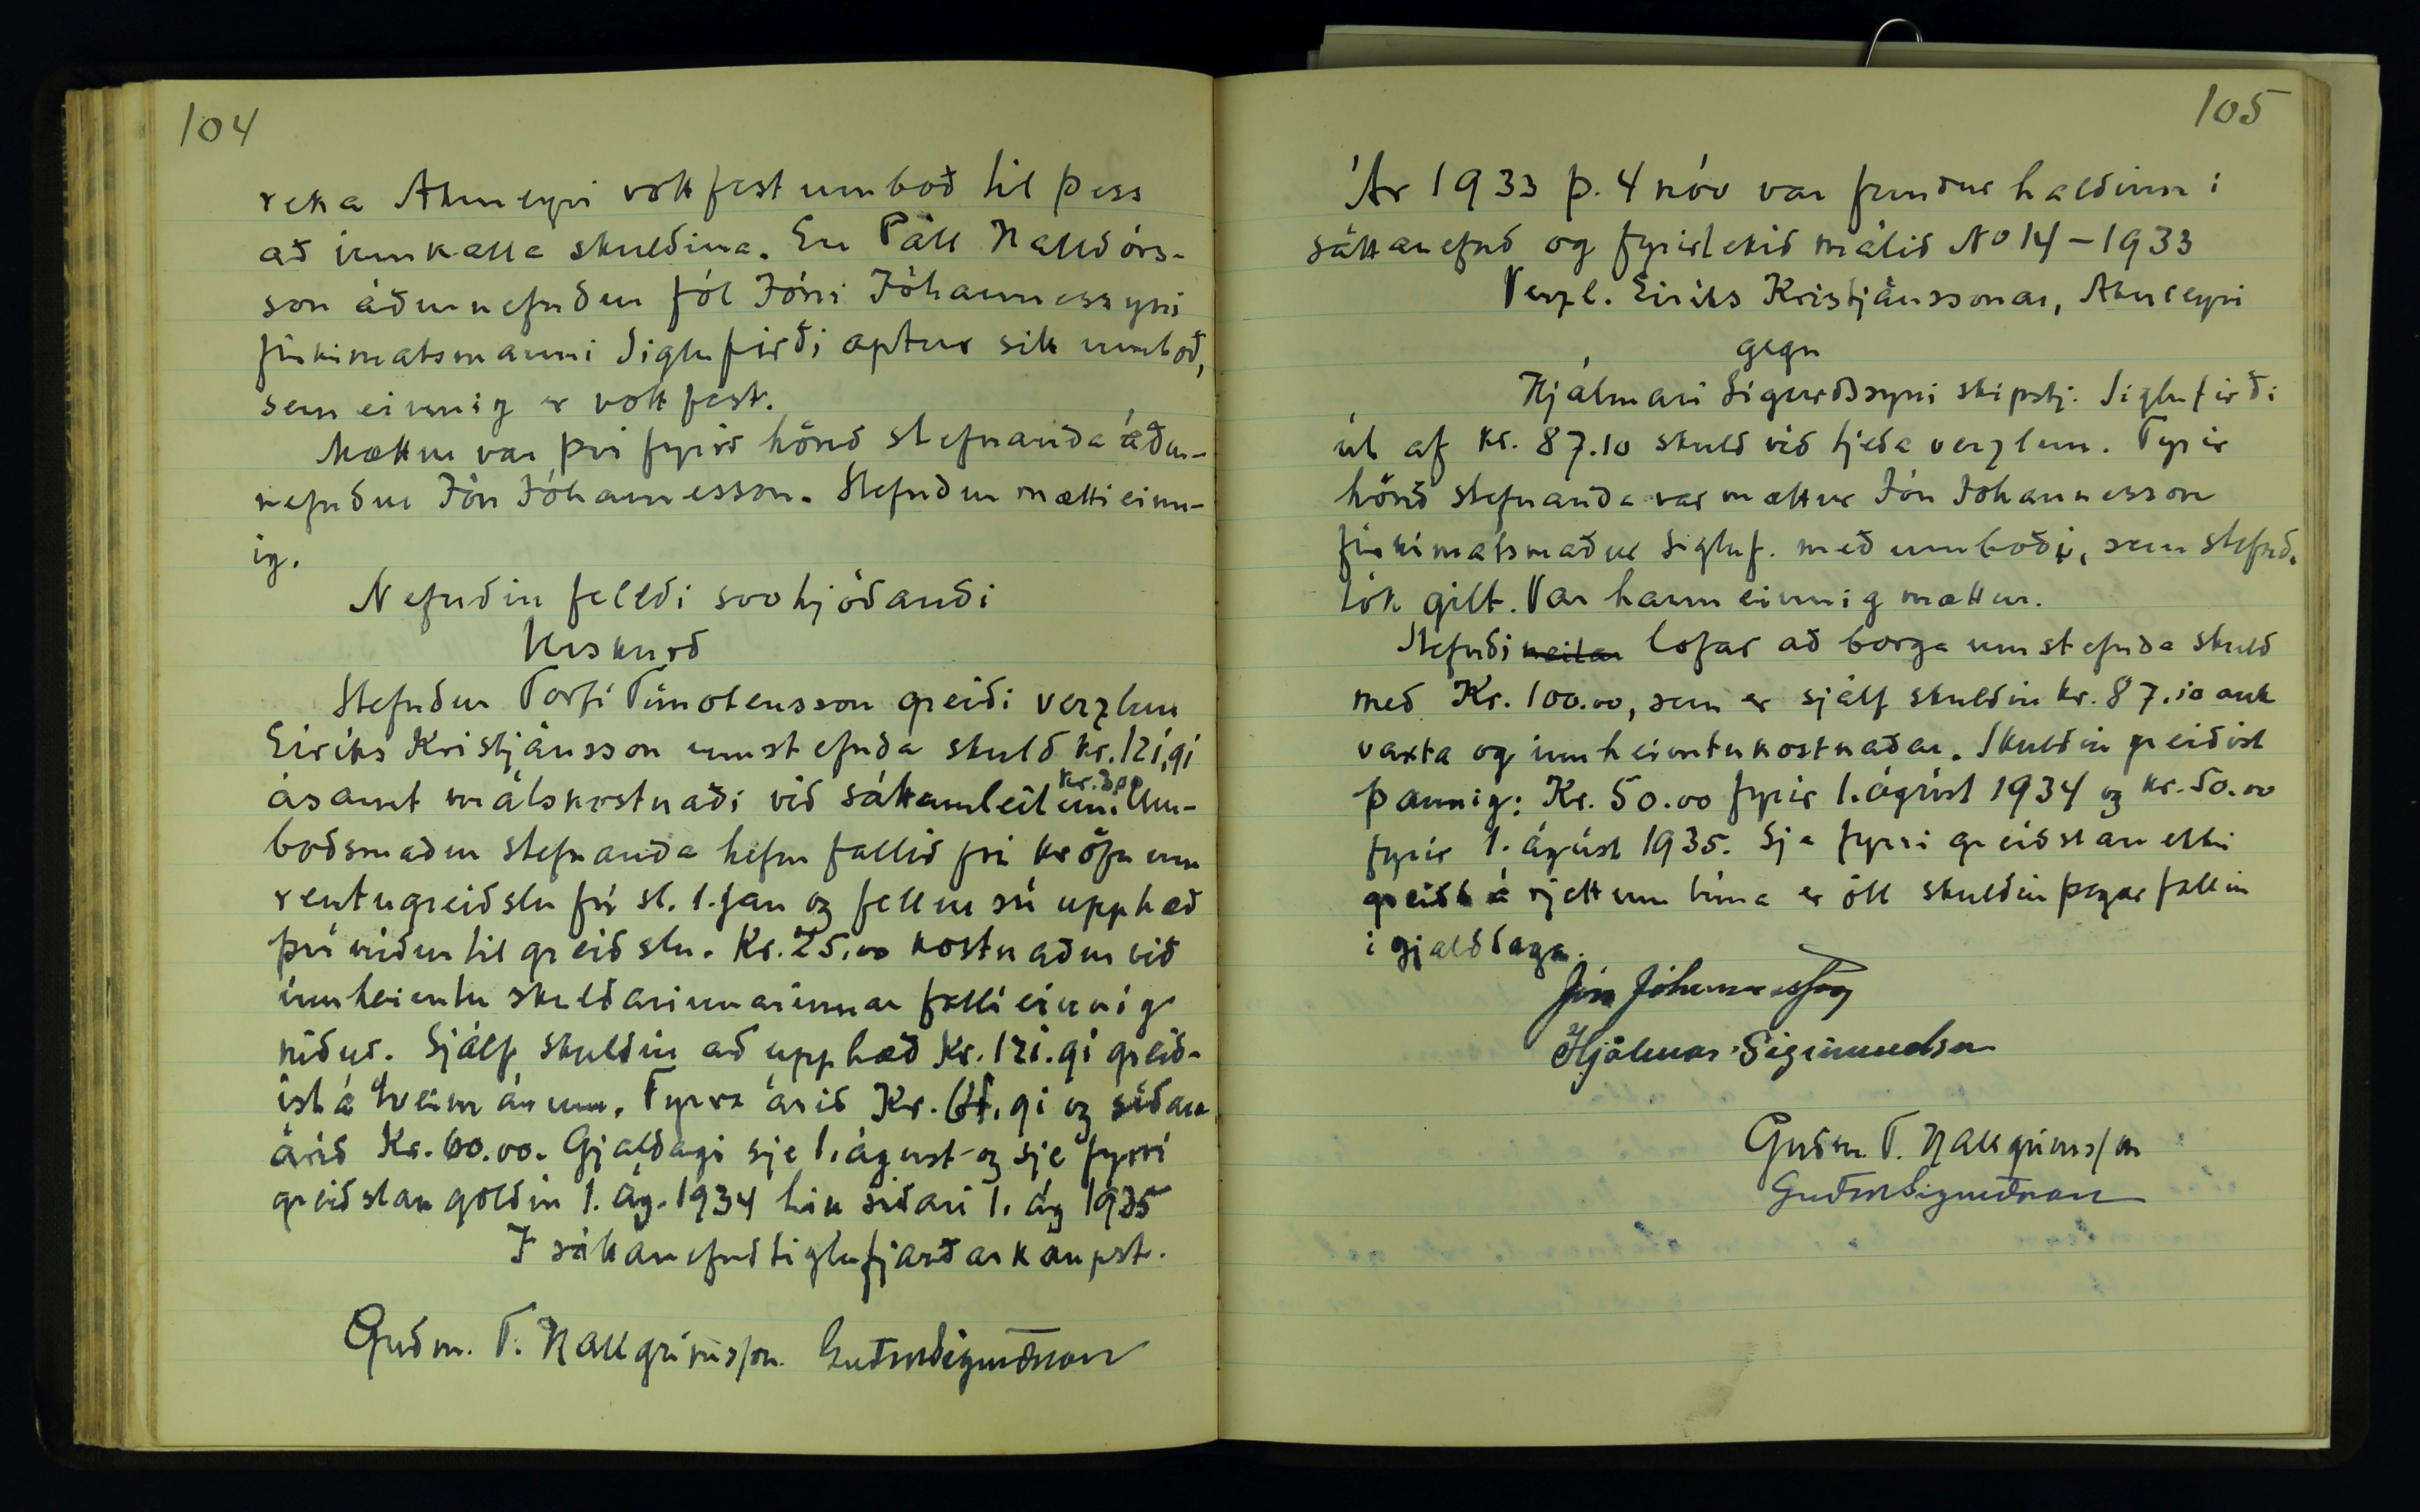 104
reka Akureyri vottfest umboð til þess
að innkalla skuldina. En Páll Halldórs-
son áðurnefndur fól Jóni Jóhannessyni
fiskimatsmanni Siglufirði aptur sitt umboð,
sem einnig er vottfest.
Mættur var því fyrir hönd stefnanda áður-
nefndur Jón Jóhannesson. Stefndur mætti einn-
ig.
Nefndin felldi svohjóðandi
Úrskurð
Stefndur Torfi Tímoteusson greiði verzlun
Eiríks Kristjánsson umstefnda skuld kr. 121,91
kr. 3.00
ásamt málskostnaði við sáttaumleitun. Um-
boðsmaður stefnanda hefur fallið frá kröfu um
rentugreiðslu frá sl. 1. jan og fellur sú upphæð
því niður til greiðslu. Kr. 25.00 kostnaður við
innheimtu skuldarinnarinnar falli einnig
niður. Sjálf skuldin að upphæð Kr. 121.91 greið-
ist á tveim árum. Fyrra árið Kr. 61,91 og síðara
árið Kr. 60.00. Gjaldagi sje 1. ágúst og sje fyrri
greiðslan goldin 1. ág. 1934 hin síðari 1. ág 1935
F sáttanefnd Siglufjarðarkaupst.
Guðm. T. Hallgrímsson. GuðmSigurðsson
105
Ár 1933 þ. 4 nóv var fundur haldinn í
sáttanefnd og fyrirtekið málið No 14 - 1933
Verzl. Eiríks Kristjánssonar, Akureyri
gegn
Hjálmari Sigurðssyni skipstj. Siglufirði
út af kr. 87.10 skuld við tjeða verzlun. Fyrir
hönd stefnanda var mættur Jón Jóhannesson
fiskimatsmaður Sigluf. með umboði, sem stefnd.
tók gilt. Var hann einnig mættur.
Stefndi neitar lofar að borga umstefnda skuld
með Kr. 100.00, sem er sjálf skuldin kr. 87.10 auk
vaxta og innheimtukostnaðar. Skuldin greiðist
þannig: Kr. 50.00 fyrir 1. ágúst 1934 og kr. 50.00
fyrir 1. ágúst 1935. Sje fyrri greiðslan ekki
greidd á rjettum tíma er öll skuldin þegar fallin
í gjalddaga.
Jón Jóhannesson
Hjálmar Sigurmundsson
Guðm. T. Hallgrímsson
GuðmSigurðsson